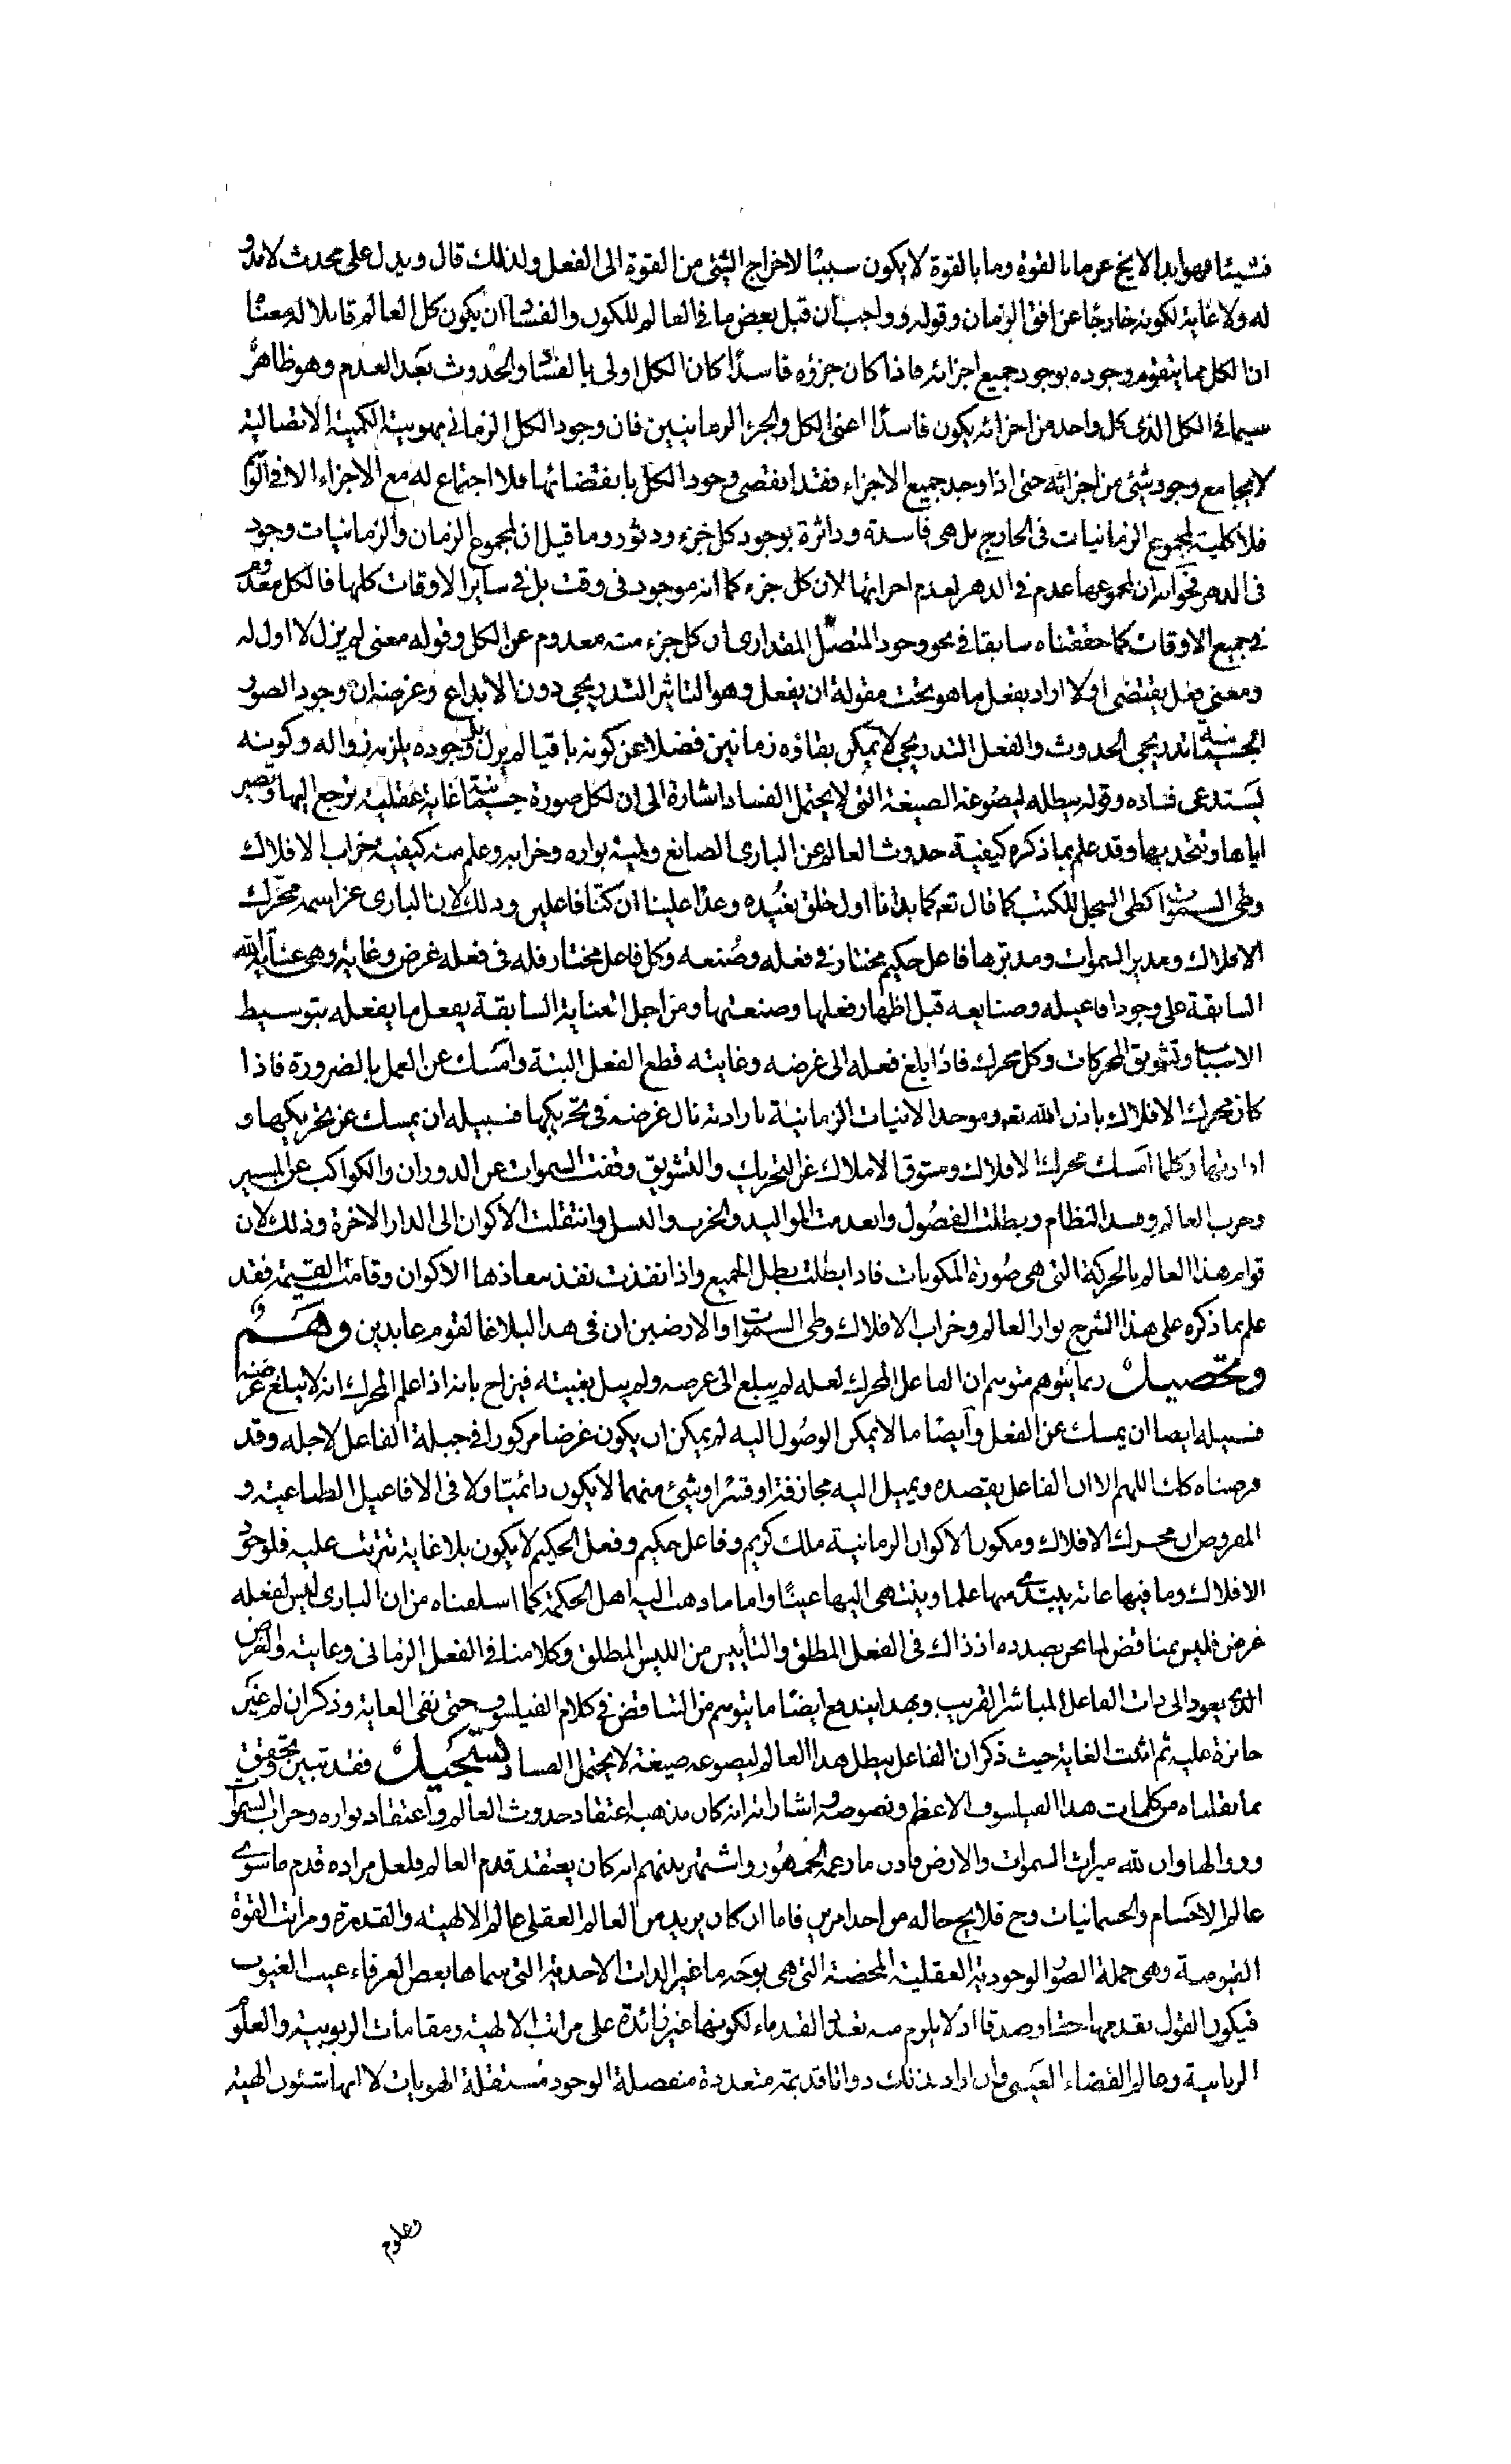 فشيئا فهو ابدا لا يخ عن ما بالقوة وما بالقوة لا يكون سببًا لاخراج الشئ من القوة الى الفعل ولذلك قال ويدل على محدث لا بدو
له ولا غاية لكونه خارجًا عن افق الزمان وقوله وواجب ان قبل بعض ما فى العالم للكون والفسا ان يكون كل العالم قابلا له معنًا
ان الكل مما يتقوم وجوده بوجود جميع اجزائه فاذا كان جزؤه فاسدًا كان الكل اولى بالفسا والحدوث بعد العدم وهو ظاهر
سيما فى الكل الذى كل واحد من اجزائه يكون فاسدًا اعنى الكل والجزء الزمانيين فان وجود الكل الزمانى بهويته الكمية الاتصالية
لا يجامع وجود شئ من اجزائه حتى اذا وجد جميع الاجزاء فقد انقضى وجود الكل بانقضائها فلا اجتماع له مع الاجزاء الا فى
فلا كلية لمجموع الزمانيات فى الخارج بل هى فاسدة وداثرة بوجود كل جزء ودثوره وما قيل ان لمجموع الزمان والزمانيات وجود
فى الدهر فجوابه ان لمجموعها عدم فى الدهر لعدم اجزائها لان كل جزء كما انه موجود فى وقت بل فى ساير الاوقات كلها فالكل معدوم
فى جميع الاوقات كما حققناه سابقا فى نحو وجود المتصل المقدارى ان كل جزء منه معدوم عن الكل وقوله معنى لم يزل لا اول له
ومعنى فعل يقتضى اولا اراد بفعل ما هو تحت مقولة ان يفعل وهو التاثير التدريجى دون الابداع وغرضه ان وجود الصور
الجسمانية تدريجى الحدوث والفعل التدريجى لا يمكن بقاؤه زمانين فضلا عن كونه باقيا لم يزل بل وجوده يلزمه زواله وكونه
يستدعى فساده وقوله يبطله ليصوغه الصيغة التى لا يحتمل الفساد اشارة الى ان لكل صورة جسمانية غاية عقلية ترجع اليها وتصير
اياها وتتحد بها وقد علم بما ذكره كيفية حدوث العالم عن البارى الصانع ولمية بواره وخرابه وعلم منه كيفية خراب الافلاك
وطى السموات كطى السجل للكتب كما قال تعم كما بدانا اول خلق نعيده وعدًا علينا ان كنّا فاعلين وذلك لان البارى عز اسمه محرك
الافلاك ومدير السموات ومدبرها فاعل حكيم مختار فى فعله وصُنعه وكل فاعل مختار فله فى فعله غرض وغاية وهى عناية الله
السابقة على وجود افاعيله وصنايعه قبل اظهار فعلها وصنعتها ومن اجل العناية السابقة يفعل ما يفعله بتوسيط
الاسباب وتشويق المحركات وكل محرك فاذا بلغ فعله الى غرضه وغايته قطع الفعل البتة وامسك عن العمل بالضرورة فاذا
كان محرك الافلاك باذن الله تعم وموجد الانيات الزمانية بارادته نال غرضه فى تحريكها فسبيله ان يمسك عن تحريكها و
ادارتها وكلما امسك محرك الافلاك ومشوق الاملاك عن التحريك والتشويق وقفت السموات عن الدوران والكواكب عن المسير
وخرب العالم وفسد النظام وبطلت الفصُول وانعدمت المواليد والحرث والنسل وانتقلت الاكوان الى الدار الاخرة وذلك لان
قوام هذا العالم بالحركة التى هى صُورة المكونات فاذا بطلت بطل الجميع واذا نفذت نفذ معاذها الاكوان وقامت القيمة فقد
علم بما ذكره على هذا الشرح بوار العالم وخراب الافلاك وطى السموات والارضين ان فى هذا لبلاغا لقوم عابدين وهم
وتحصيل ربما يتوهم متوهم ان الفاعل المحرك لعله لم يبلغ الى غرضه ولم ينل بغيته فيزاح بانه اذا علم المحرك انه لا يبلغ غرضه
فسبيله ايضا ان يمسك عن الفعل وأيضًا ما لا يمكن الوصُول اليه لم يمكن ان يكون غرضا مركوزا فى جبلة الفاعل لاجله وقد
فرضناه كك اللهم الا ان الفاعل يقصده ويميل اليه مجازفة او قسرًا وشئ منهما لا يكون دائميًا ولا فى الافاعيل الطباعية و
المفروض ان محرك الافلاك ومكون الاكوان الزمانية ملك كريم وفاعل حكيم وفعل الحكيم لا يكون بلا غاية تترتب عليه فلوجود
الافلاك وما فيها غاية يبتدى منها علما وينتهى اليها عينًا واما ما ذهب اليه اهل الحكمة كما اسلفناه من ان البارى ليس لفعله
غرض فليس بمناقض لما نحن بصدده اذ ذاك فى الفعل المطلق والتأييس من الليس المطلق وكلامنا فى الفعل الزمانى وغايته والغرض
الذى يعود الى ذات الفاعل المباشر القريب وبهذا يندفع ايضًا ما يتوهم من التناقض فى كلام الفيلسوف حتى نفى الغاية وذكر ان لم غير
جائزة عليه ثم اثبت الغاية حيث ذكر ان الفاعل يبطل هذا العالم ليصوغه صيغة لا يحتمل الفساد تسجيل فقد تبين وتحقق
بما نقلناه من كلمات هذا الفيلسوف الاعظم ونصوصه واشاراته انه كان مذهبه اعتقاد حدوث العالم واعتقاد بواره وخراب السموات
وزوالها وان لله ميراث السموات والارض فاذن ما زعمه الجمهُور واشتهر بينهم انه كان يعتقد قدم العالم فلعل مراده قدم ما سوى
عالم الاجسام والجسمانيات وح فلا يخ حاله من احد امرين فاما ان كان يريد من العالم العقلى عالم الالهية والقدرة ومراتب القوة
القيومية وهى جملة الصور الوجودية العقلية المحضة التى هى بوجه ما غير الذات الاحدية التى سماها بعض العرفاء غيب الغيوب
فيكون القول بقدمها حقا وصدقا اذ لا يلزم منه تعدد القدماء لكونها غير زائدة على مراتب الالهية ومقامات الربوبية والعلوم
الربانية وعالم القضاء العينى وان اراد بذلك ذواتا قديمة متعددة منفصلة الوجود مُستقلة الهويات لا انها شئون الهية
وعلوم